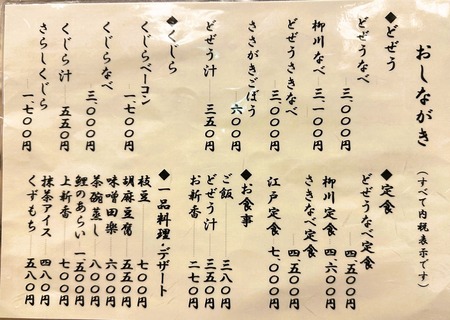 おしながき
(すべて内税表示です)
◆どぜう
どぜうなべ 三、〇〇〇円
柳川なべ 三、一〇〇円
どぜうさきなべ 三、〇〇〇円
ささがきごぼう 六〇〇円
どぜう汁 三五〇円
◆くじら
くじらベーコン 一、七〇〇円
くじらなべ 三、〇〇〇円
くじら汁 五五〇円
さらしくじら 一、七〇〇円
◆定食
どぜうなべ定食 四、五〇〇円
柳川定食 四、六〇〇円
さきなべ定食 四、五〇〇円
江戸定食 七、〇〇〇円
◆お食事
ご飯 三八〇円
どぜう汁 三五〇円
お新香 二七〇円
◆一品料理・デザート
枝豆 七〇〇円
胡麻豆腐 七〇〇円
味噌田楽 六〇〇円
茶碗蒸し 八〇〇円
鯉のあらい 一、五〇〇円
上新香 七〇〇円
抹茶アイス 四八〇円
くずもち 五八〇円